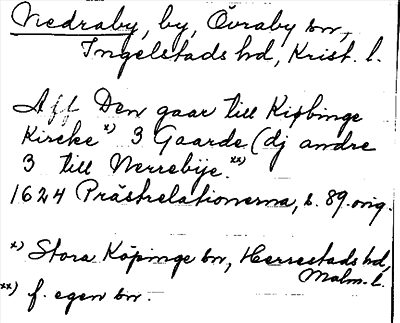 Nedraby, by, Övraby sn,
Ingelstads hd, Krist. l.
Aff Den gaar till Kiøbinge
Kircke x) 3 Gaarde (dj andre
3 till Nerrebÿe. xx)
1624 Prästrelationerna, s. 89. orig.
x) Stora Köpinge sn, Herrestads hd,
Malm. l.
xx) f. egen sn.